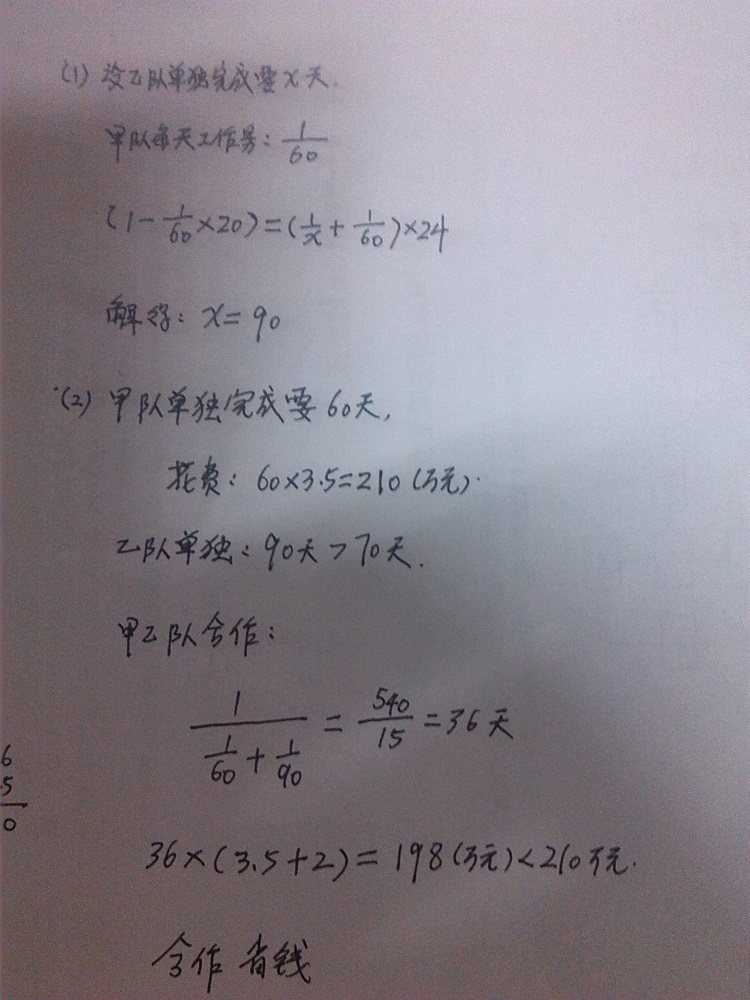 (1) 设乙队单独完成要x天.
甲队每天工作量: 1/60
(1-1/60×20)=(1/x+1/60)×24
解得: x=90
(2) 甲队单独完成要60天,
花费: 60×3.5=210(万元).
乙队单独: 90天>70天.
甲乙队合作:
1/(1/60+1/90)=540/15=36天
36×(3.5+2)=198(万元)<210万元.
合作 省钱
6
5
0